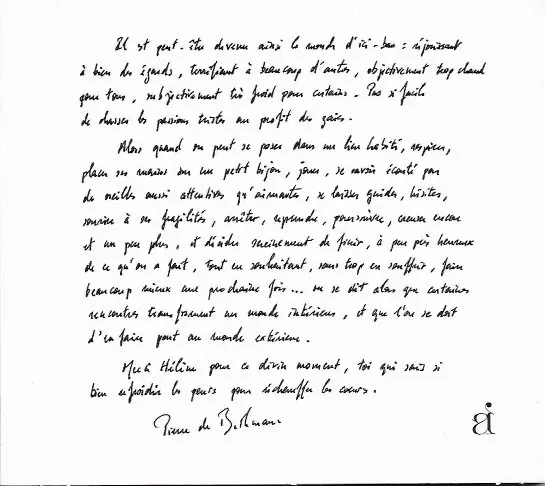 Il est peut-être devenu ainsi le monde d'ici-bas : réjouissant
à bien des égards, terrifiant à beaucoup d'autres, objectivement trop chaud
pour tous, subjectivement très froid pour certains. Pas si facile
de chasser les passions tristes au profit des gaies.
Alors quand on peut se poser dans un lieu habité, respirer,
placer ses mains sur un petit bijou, jouer, se savoir écouté par
des oreilles aussi attentives qu'aimantes, se laisser guider, hésiter,
sourire à ses fragilités, arrêter, reprendre, poursuivre, creuser encore
et un peu plus, et décider sereinement de finir, à peu près heureux
de ce qu'on a fait, tout en souhaitant, sans trop en souffrir, faire
beaucoup mieux une prochaine fois... on se dit alors que certaines
rencontres transforment un monde intérieur, et que l'on se doit
d'en faire part au monde extérieur.
Merci Hélène pour ce divin moment, toi qui sais si
bien refroidir les peurs pour réchauffer les coeurs.
Pierre de Bethmann